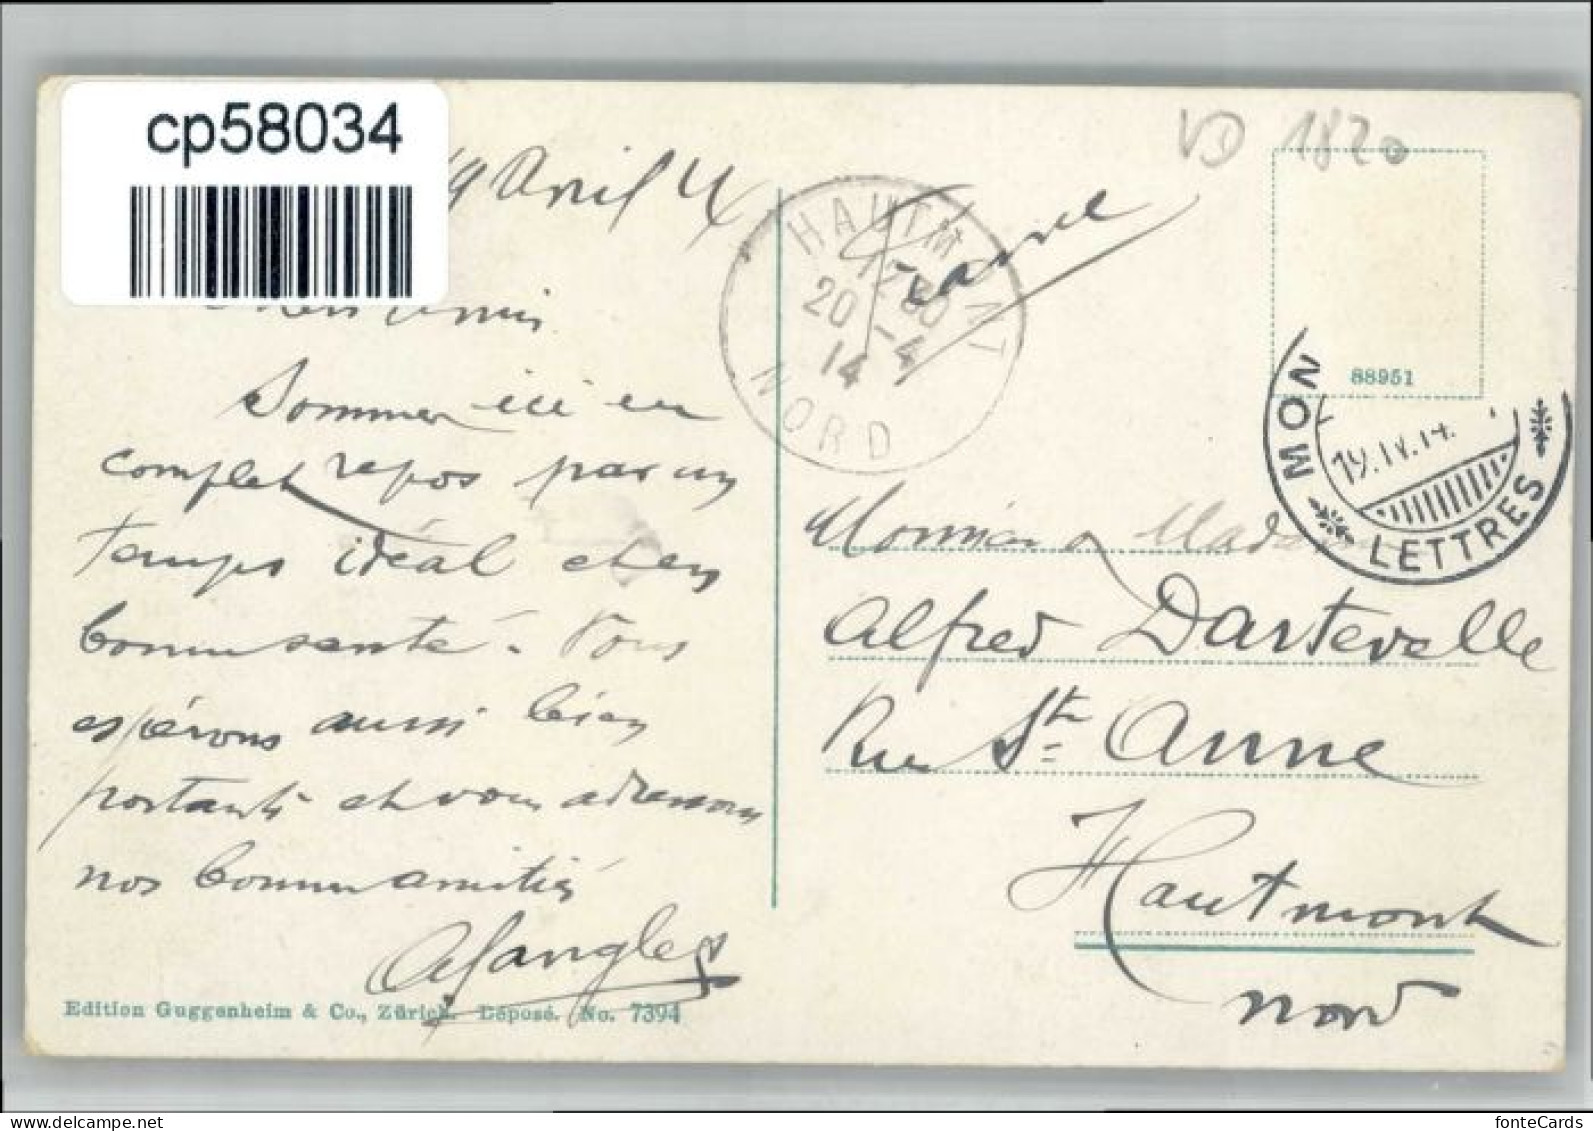 cp58034
19 Avril 14
VD 1820
France
HAUTMONT
20 -4
14
NORD
88951
MON
19.IV.14.
LETTRES
amis
Sommes ici en
complet repos par un
temps idéal et en
bonne santé. Vous
espérons aussi bien
portants et vous adressons
nos bonnes amitiés
Monsieur Madame
Alfred Dartevelle
Rue Ste Anne
Hautmont
Nord
Edition Guggenheim & Co., Zürich. Déposé. No. 7394
delcampe.net
fonteCards